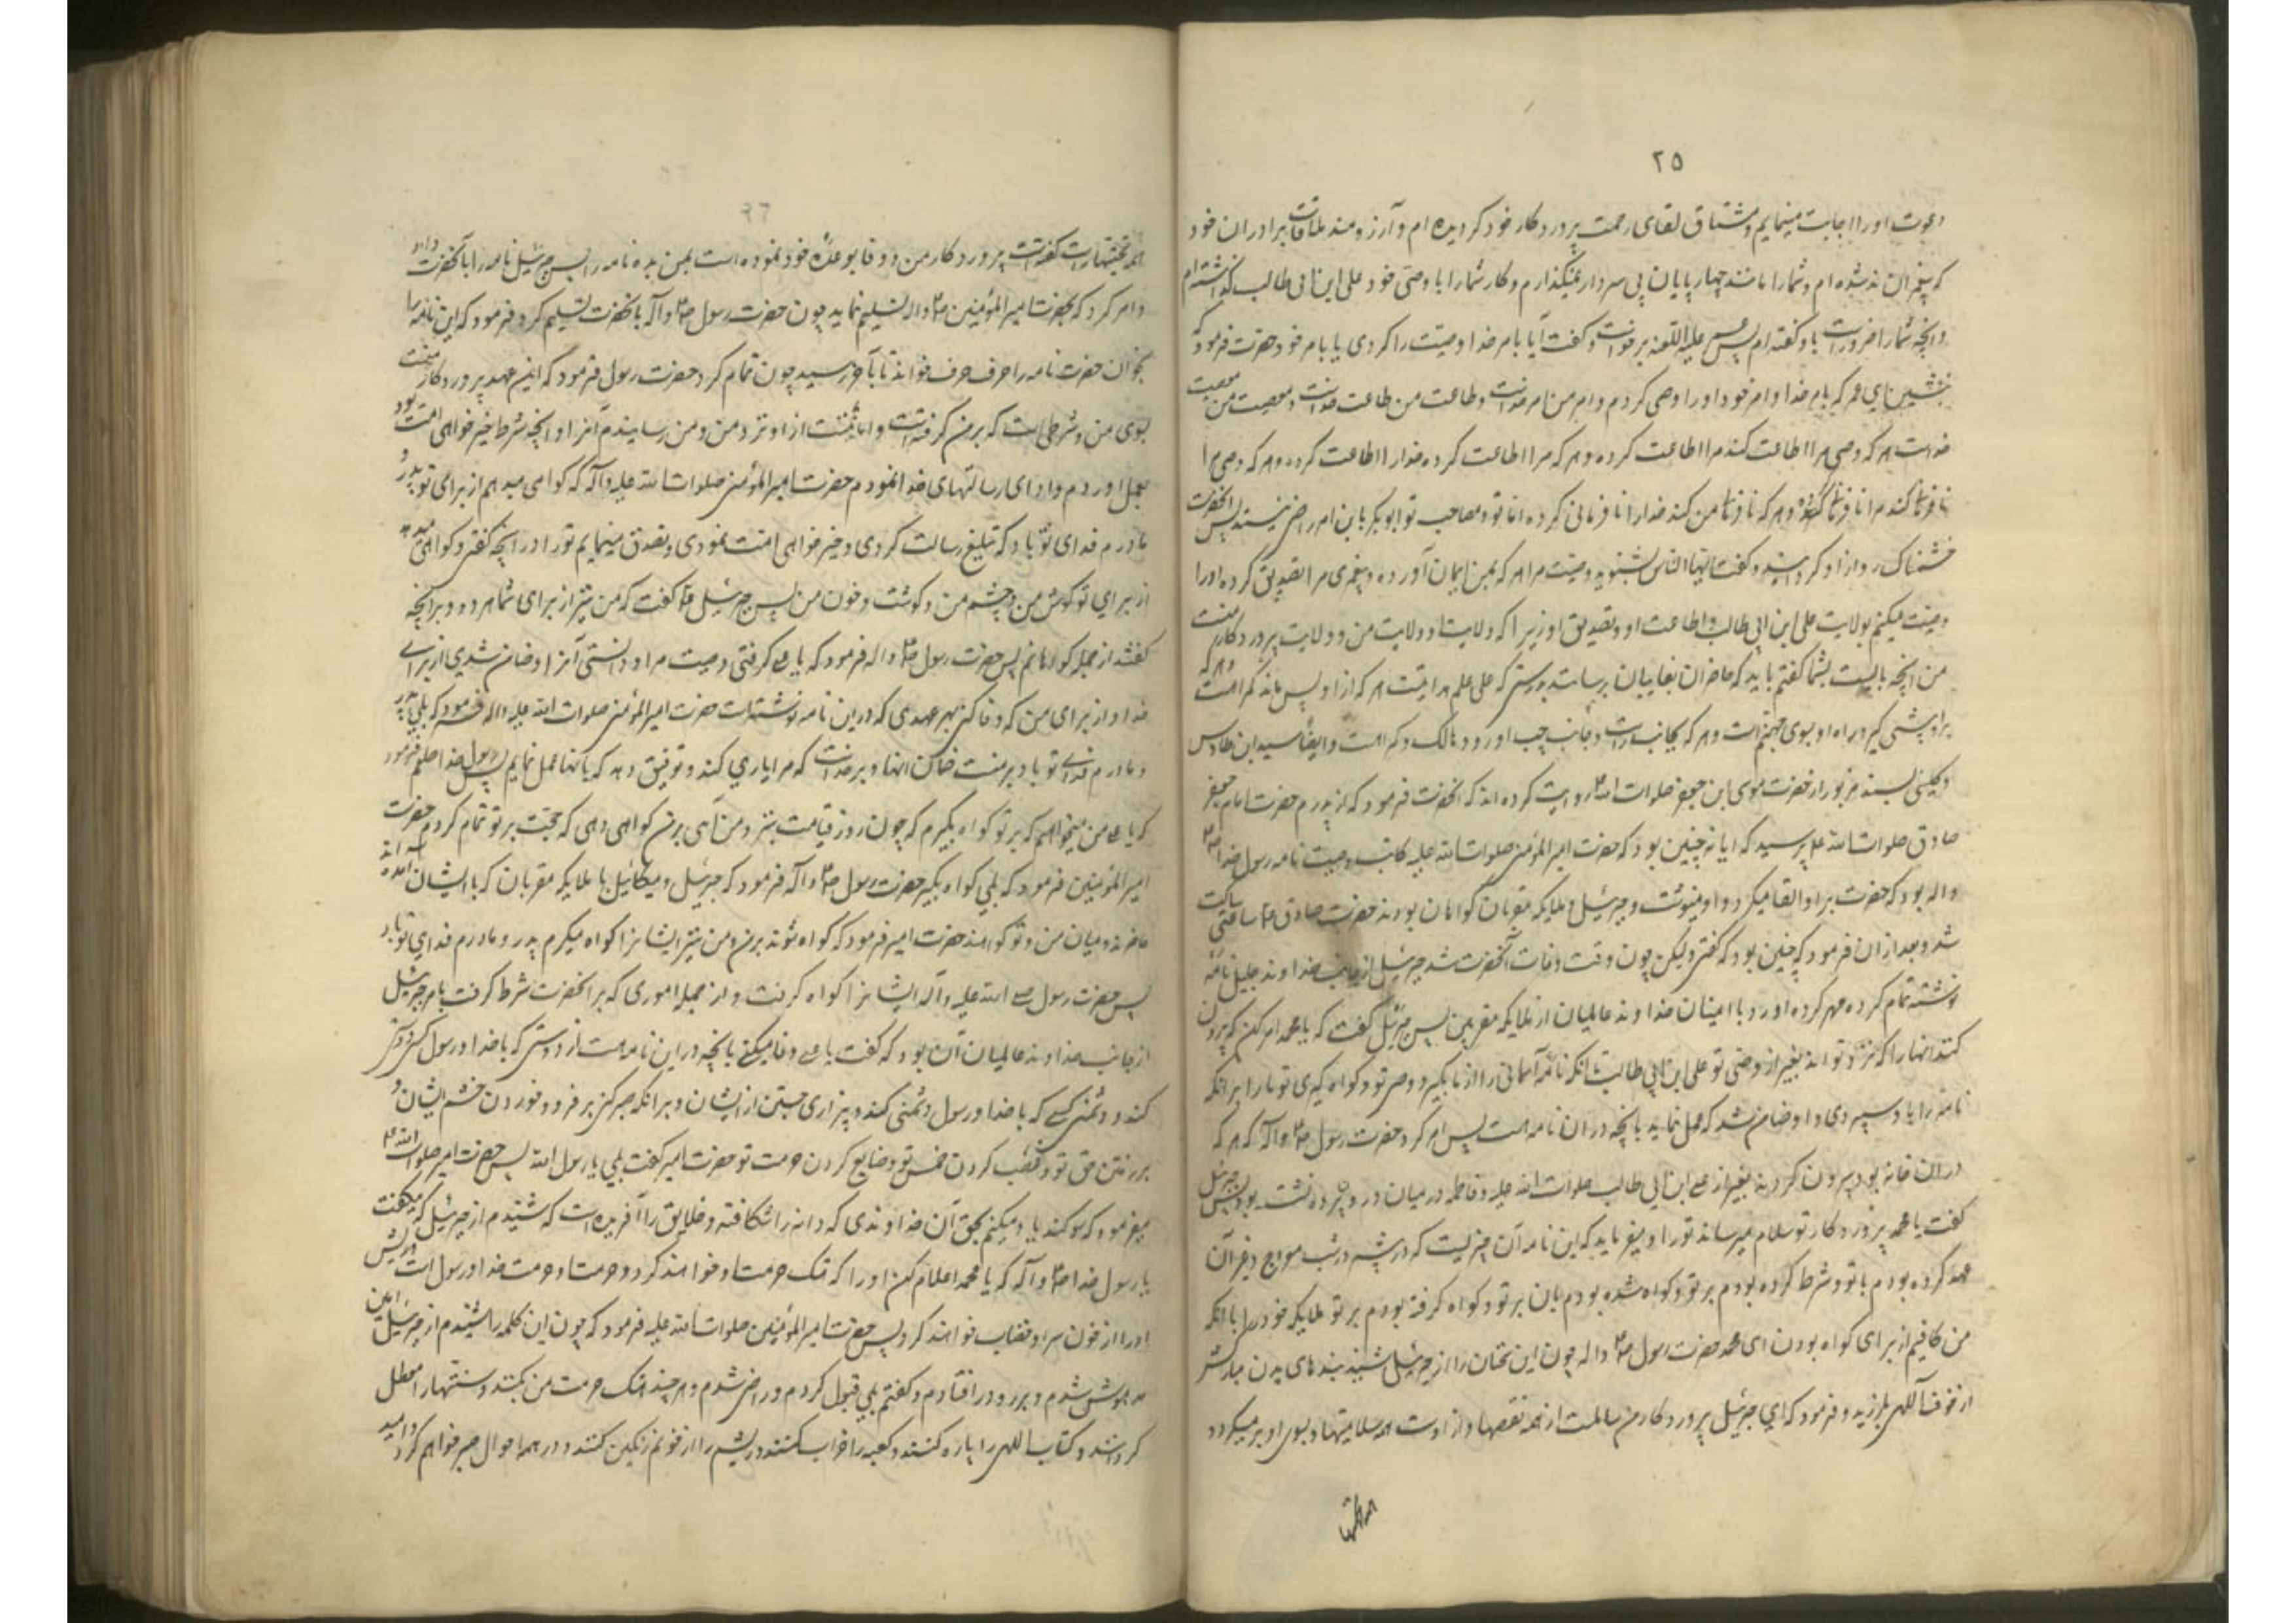 ٢٥
دعوت او را اجابت مینمایم و مشتاق لقای رحمت پروردکار خود کردیده ام و آرزومند ملاقات برادران خود
که پیغمبران اند شده ام و شما را مانند چهار پایان بی سردار نمیکذارم و کار شما را با وصی خود علی ابن ابی طالب کذاشته ام
و انچه شما را ضرور است باو کفته ام پس عمر علیه اللعنه برخواست و کفت آیا بامر خدا او وصیت را کردی یا بامر خود حضرت فرمود که
بنشین ای عمر که بامر خدا و امر خود او را وصی کردم و امر من امر خداست و طاعت من طاعت خداست و معصیت من معصیت
خداست هر که وصی مرا اطاعت کند مرا اطاعت کرده و هر که مرا اطاعت کرده خدا را اطاعت کرده و هر که وصی مرا
نافرمانی کند مرا نافرمانی کرده و هر که نافرمانی من کند خدا را نافرمانی کرده اما تو و مصاحب تو ابوبکر باین امر راضی نیستید پس انحضرت
خشمناک رو از او کردانید و کفت ایها الناس بشنوید وصیت مرا هر که بمن ایمان آورده و پیغمبری مرا تصدیق کرده او را
وصیت میکنم بولایت علی ابن ابی طالب و اطاعت او و تصدیق او زیرا که ولایت او ولایت من و ولایت پروردکار منست
من انچه بایست بشما کفتم باید که حاضران بغایبان برسانند بدرستی که علی علم هدایتست هر که از او پس ماند کمراهست و هر که
بر او پیشی کیرد راه او بسوی جهنم است و هر که بجانب راست و جانب چپ او رود هالک و کمراهست و ایضا سید ابن طاوس
و کلینی بسند مزبور از حضرت موسی ابن جعفر صلوات الله روایت کرده اند که انحضرت فرمود که از پدرم حضرت امام جعفر
صادق صلوات الله علیه پرسید که ایا نه چنین بود که حضرت امیر المؤمنین صلوات الله علیه کاتب وصیت نامه رسول خدا ص
واله بود که حضرت بر او القا میکرد و او مینوشت و جبرئیل و ملایکه مقربان کواهان بودند حضرت صادق ع ساعتی ساکت
شد و بعد از ان فرمود که چنین بود که کفتی ولیکن چون وقت وفات آنحضرت شد جبرئیل از جانب خداوند جلیل نامهٔ
نوشته تمام کرده مهر کرده اورد با امینان خداوند عالمیان از ملایکه مقربین پس جبرئیل کفت که یا محمد امر کن که بیرون
کنند انها را که نزد تو اند بغیر از وصی تو علی ابن ابی طالب تا انکه نامه آسمانی را از ما بکیرد وصی تو و کواه کیری تو ما را بر انکه
نامه را باو سپردی و او ضامن شد که عمل نماید بانچه در ان نامه است پس امر کرد حضرت رسول ص واله که هر که
در ان خانه بود بیرون کردند بغیر از علی ابن ابی طالب صلوات الله علیه و فاطمه در میان در و پرده نشسته بود پس جبرئیل
کفت یا محمد پروردکار تو سلام میرساند تو را و میفرماید که این نامه آن چیزیست که در شب معراج و غیر آن
عهد کرده بودم با تو و شرط کرده بودم بر تو و کواه شده بودم بان بر تو و کواه کرفته بودم بر تو ملایکه خود را با انکه
من کافیم از برای کواه بودن ای محمد حضرت رسول ص واله چون این سخنان را از جبرئیل شنید بندهای بدن مبارکش
از خوف آلهی بلرزید و فرمود که ای جبرئیل پروردکار من سالمست از همه نقصها و از اوست همه سلامتیها و بسوی او بر میکردد
٢٦
همه تحیتها راست کفتست پروردکار من و وفا بوعدهٔ خود نموده است بمن بده نامه را پس جبرئیل نامه را بآنحضرت داد
و امر کرد که بحضرت امیر المؤمنین ص واله تسلیم نماید چون حضرت رسول ص واله بآنحضرت تسلیم کرد فرمود که این نامه را
بخوان حضرت نامه را حرف حرف خواند تا بآخر رسید چون تمام کرد حضرت رسول فرمود که این عهد پروردکار منست
بسوی من و شرطی است که بر من کرفته است و امانتست از او نزد من و من رسانیدم آنرا و انچه شرط خیر خواهی امت بود
بعمل اوردم و ادای رسالتهای خدا نمودم حضرت امیر المؤمنین صلوات الله علیه واله که کواهی میدهم از برای تو پدر و
مادرم فدای تو باد که تبلیغ رسالت کردی و خیر خواهی امت نمودی و تصدیق مینمایم تو را در انچه کفتی و کواهی میدهد
از برای تو کوش من و چشم من و کوشت و خون من پس جبرئیل ع کفت که من نیز از برای شما هر دو بر انچه
کفتید از جمله کواهانم پس حضرت رسول ص واله فرمود که یا علی کرفتی وصیت مرا و دانستی آنرا و ضامن شدی از برای
خدا و از برای من که وفا کنی بهر عهدی که در این نامه نوشته است حضرت امیر المؤمنین صلوات الله علیه واله فرمود که بلی پدر
و مادرم فدای تو باد بر منست ضمان انها و بر خداست که مرا یاری کند و توفیق دهد که بانها عمل نمایم پس رسول خدا صلعم فرمود
که یا علی من میخواهم که بر تو کواه بکیرم که چون روز قیامت بنزد من آئی بر من کواهی دهی که حجت بر تو تمام کردم حضرت
امیر المؤمنین فرمود که بلی کواه بکیر حضرت رسول ص واله فرمود که جبرئیل و میکائیل با ملایکه مقربان که با ایشان آمده اند
حاضرند و میان من و تو کواهند حضرت امیر فرمود که کواه شوند بر من و من نیز ایشانرا کواه میکیرم پدر و مادرم فدای تو باد
پس حضرت رسول صلی الله علیه وآله ایشانرا کواه کرفت و از جمله اموری که بر انحضرت شرط کرفت بامر جبرئیل
از جانب خداوند عالمیان آن بود که کفت یا علی وفا میکنی بانچه در این نامه هست از دوستی که با خدا و رسول دوستی
کند و دشمنی کسی که با خدا و رسول دشمنی کند و بیزاری جستن از ایشان و بر انکه صبر کنی بر فرو خوردن خشم ایشان و
بر رفتن حق تو و غصب کردن خمس تو و ضایع کردن حرمت تو حضرت امیر کفت بلی یا رسول الله پس حضرت امیر صلوات الله ع
میفرمود که سوکند یاد میکنم بحق آن خداوندی که دانه را شکافته و خلایق را آفریده است که شنیدم از جبرئیل که میکفت
با رسول خدا ص واله که یا محمد اعلام کن او را که هتک حرمت او خواهند کرد و حرمت او حرمت خدا و رسول است و ریش
او را از خون سر او خضاب خواهند کرد پس حضرت امیر المؤمنین صلوات الله علیه فرمود که چون این کلمه را شنیدم از جبرئیل امین
مدهوش شدم و بر رو در افتادم و کفتم بلی قبول کردم و راضی شدم و هر چند هتک حرمت من بکنند و سنتها را معطل
کردانند و کتاب الهی را پاره کنند و کعبه را خراب کنند و ریشم را از خونم رنکین کنند و در همه احوال صبر خواهم کرد و امید